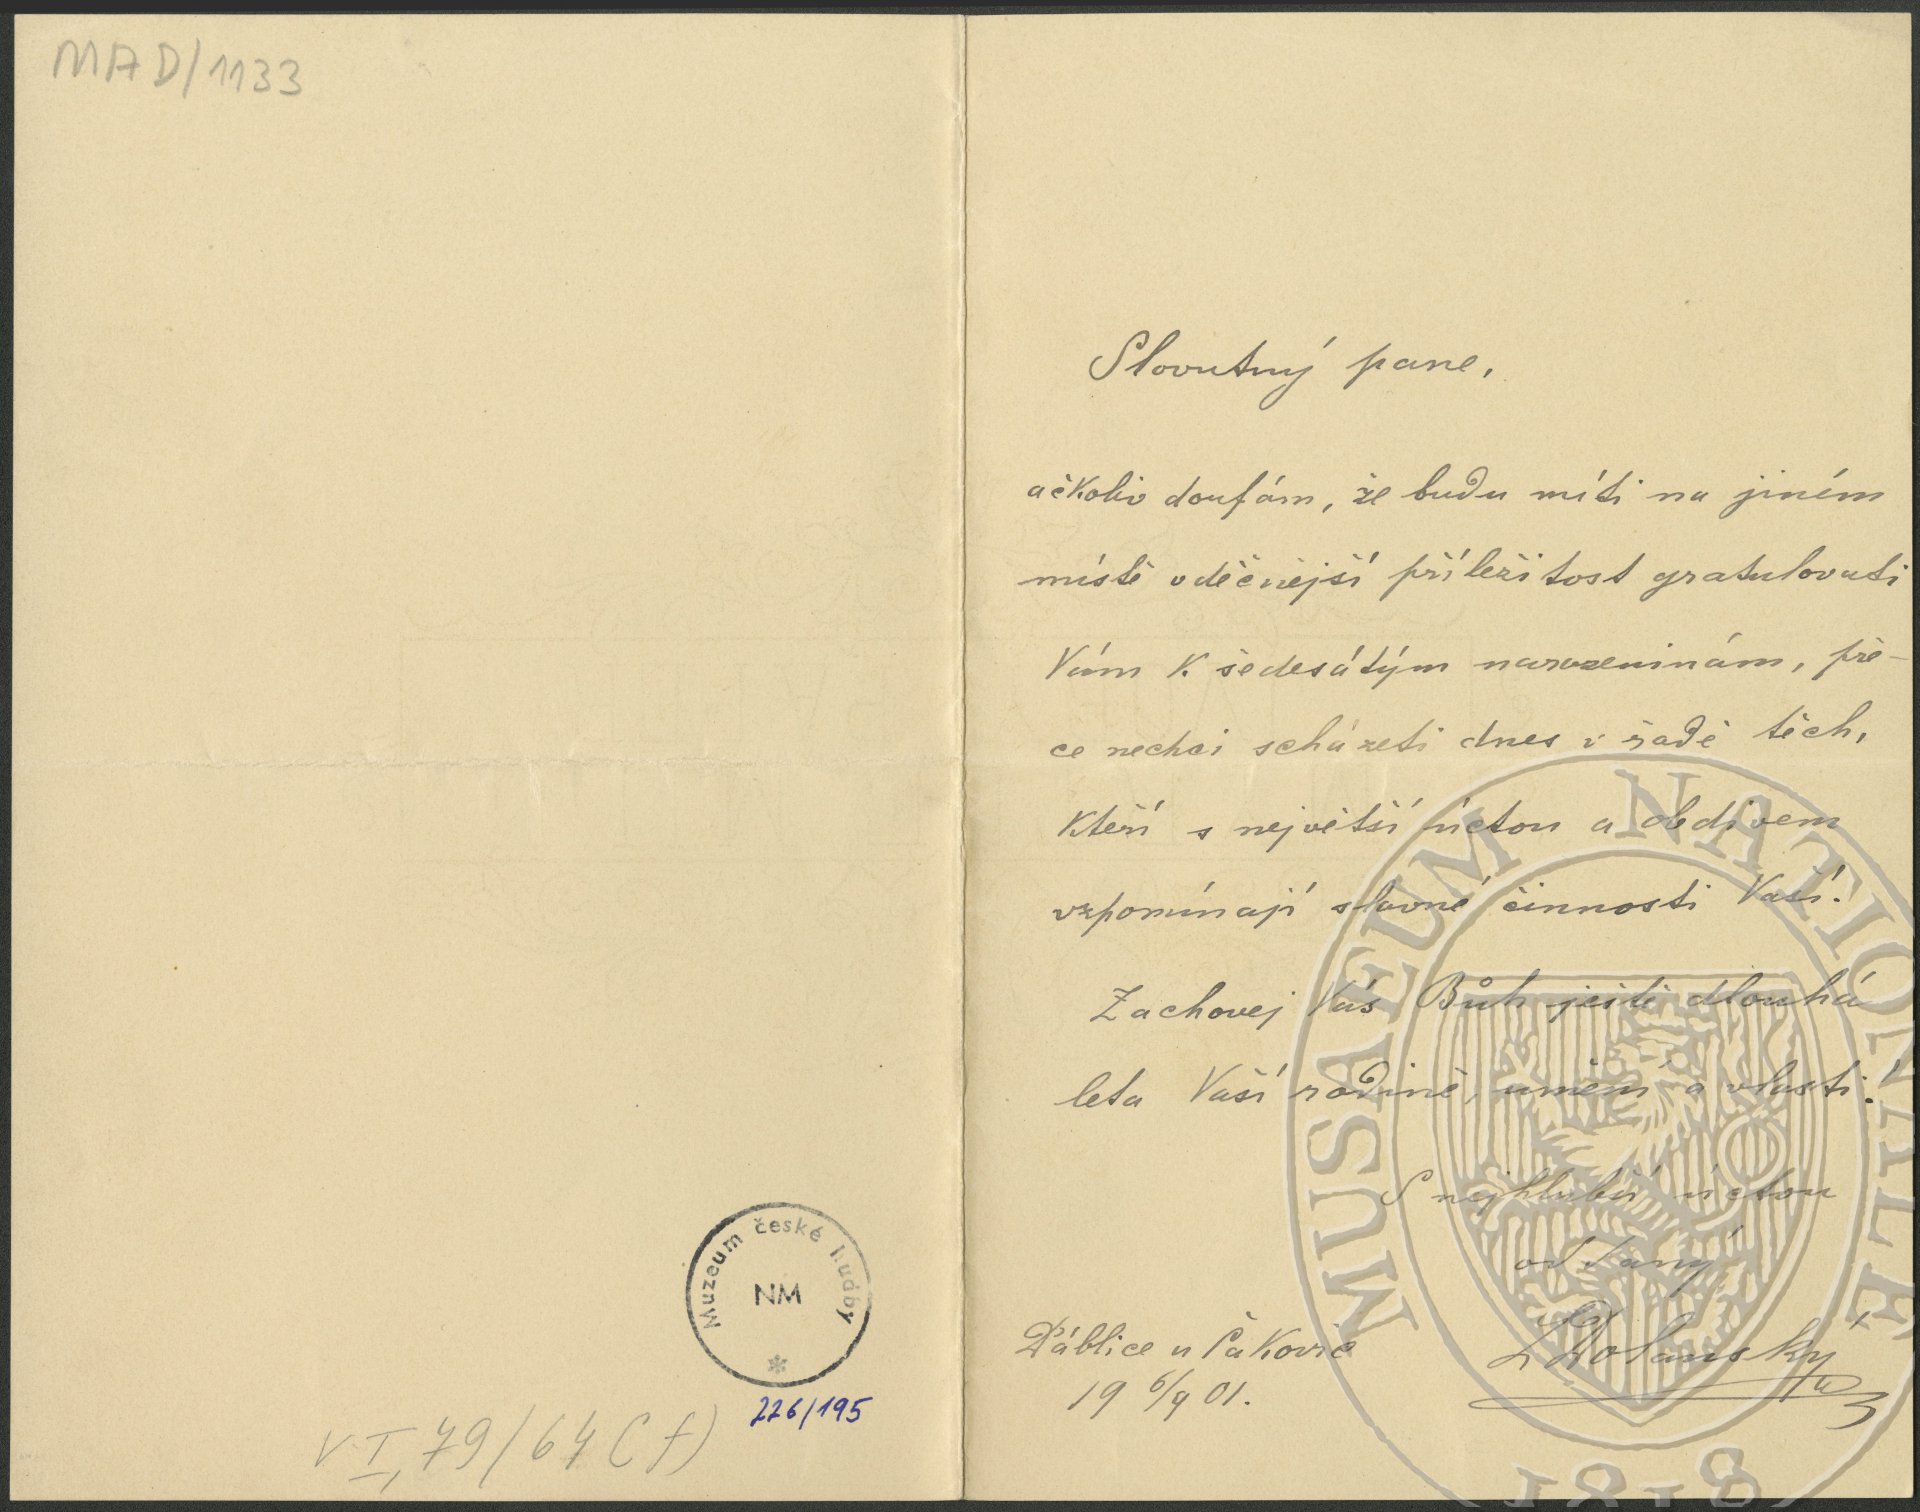 MAD/1133
Muzeum české hudby
NM
226/195
VI, 79/64 Cf)
Slovutný pane,
ačkoliv doufám, že budu míti na jiném
místě vděčnější příležitost gratulovati
Vám k šedesátým narozeninám, pře-
ce nechci scházeti dnes v řadě těch,
kteří s největší úctou a obdivem
vzpomínají slavné činnosti Vaší.
Zachovej Vás Bůh ještě dlouhá
leta Vaší rodině, umění a vlasti!
S nejhlubší úctou
oddaný
LDolanský
Ďáblice u Čakovic
19 6/9 01.
MUSAEUM NATIONALE
1818